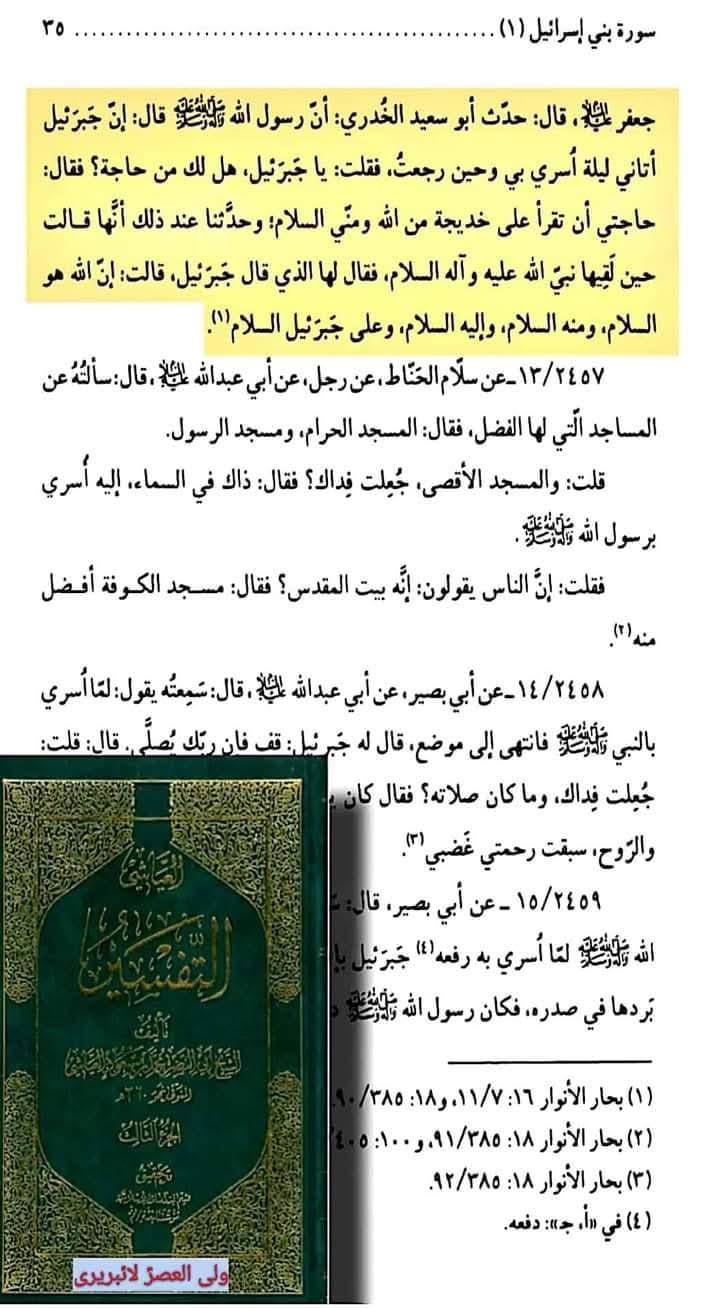 سورة بني إسرائيل (١) ........................................ ٣٥
جعفر عليه السلام، قال: حدّث أبو سعيد الخُدري: أنّ رسول الله ﷺ قال: إنّ جَبرَئيل
أتاني ليلة أُسري بي وحين رجعتُ، فقلت: يا جَبرَئيل، هل لك من حاجة؟ فقال:
حاجتي أن تقرأ على خديجة من الله ومنّي السلام؛ وحدَّثنا عند ذلك أنَّها قالت
حين لَقِيها نبيّ الله عليه وآله السلام، فقال لها الذي قال جَبرَئيل، قالت: إنّ الله هو
السلام، ومنه السلام، وإليه السلام، وعلى جَبرَئيل السلام(١).
١٣/٢٤٥٧ ـ عن سلّام الحَنّاط، عن رجل، عن أبي عبدالله عليه السلام، قال: سألتُهُ عن
المساجد الّتي لها الفضل، فقال: المسجد الحرام، ومسجد الرسول.
قلت: والمسجد الأقصى، جُعِلت فِداك؟ فقال: ذاك في السماء، إليه أُسري
برسول الله ﷺ.
فقلت: إنَّ الناس يقولون: إنَّه بيت المقدس؟ فقال: مسجد الكوفة أفضل
منه(٢).
١٤/٢٤٥٨ ـ عن أبي بصير، عن أبي عبدالله عليه السلام، قال: سَمِعتُه يقول: لمّا أُسري
بالنبي ﷺ فانتهى إلى موضع، قال له جَبرئيل: قف فإن ربّك يُصلّي. قال: قلت:
جُعِلت فِداك، وما كان صلاته؟ فقال كان
والرّوح، سبقت رحمتي غَضبي(٣).
١٥/٢٤٥٩ ـ عن أبي بصير، قال:
الله ﷺ لمّا أُسري به رفعه(٤) جَبرَئيل
بَردها في صدره، فكان رسول الله ﷺ
(١) بحار الأنوار ١٦: ١١/٧، و١٨: ٩٠/٣٨٥.
(٢) بحار الأنوار ١٨: ٩١/٣٨٥، و١٠٠: ٤٠٥/
(٣) بحار الأنوار ١٨: ٩٢/٣٨٥.
(٤) في «أ، ج»: دفعه.
التفسير
تأليف
الجزء الثالث
تحقيق
ولی العصرؑ لائبریری